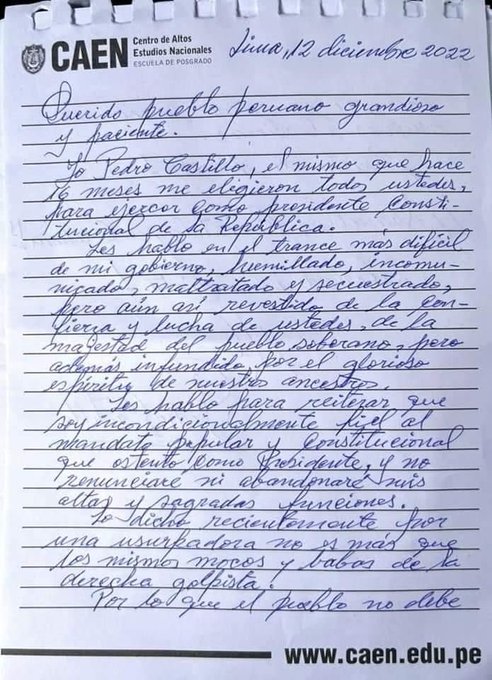 CAEN
Centro de Altos
Estudios Nacionales
ESCUELA DE POSGRADO
Lima, 12 diciembre 2022
Querido pueblo peruano grandioso
y paciente.
Yo Pedro Castillo, el mismo que hace
16 meses me eligieron todos ustedes,
para ejercer como presidente Consti-
tucional de la República.
Les hablo en el trance más difícil
de mi gobierno, humillado, incomu-
nicado, maltratado y secuestrado,
pero aún así revestido de la con-
fianza y lucha de ustedes, de la
majestad del pueblo soberano, pero
además infundido por el glorioso
espíritu de nuestros ancestros.
Les hablo para reiterar que
soy incondicionalmente fiel al
mandato popular y Constitucional
que ostento como Presidente, y no
renunciaré ni abandonaré mis
altas y sagradas funciones.
Lo dicho recientemente por
una usurpadora no es más que
los mismos mocos y babas de la
derecha golpista.
Por lo que el pueblo no debe
www.caen.edu.pe